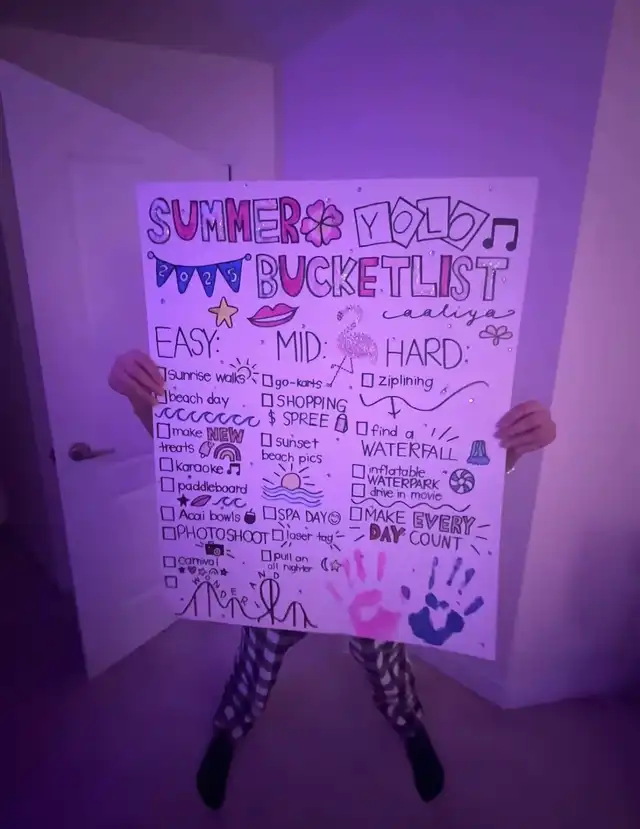 SUMMER YOLO
2025 BUCKETLIST
aaliya
EASY:
sunrise walks
beach day
make NEW
treats
karaoke
paddleboard
Acai bowls
PHOTOSHOOT
carnival
WONDERLAND
MID:
go-karts
SHOPPING
$ SPREE
sunset
beach pics
SPA DAY
laser tag
pull an
all nighter
HARD:
ziplining
find a
WATERFALL
inflatable
WATERPARK
drive in movie
MAKE EVERY
DAY COUNT